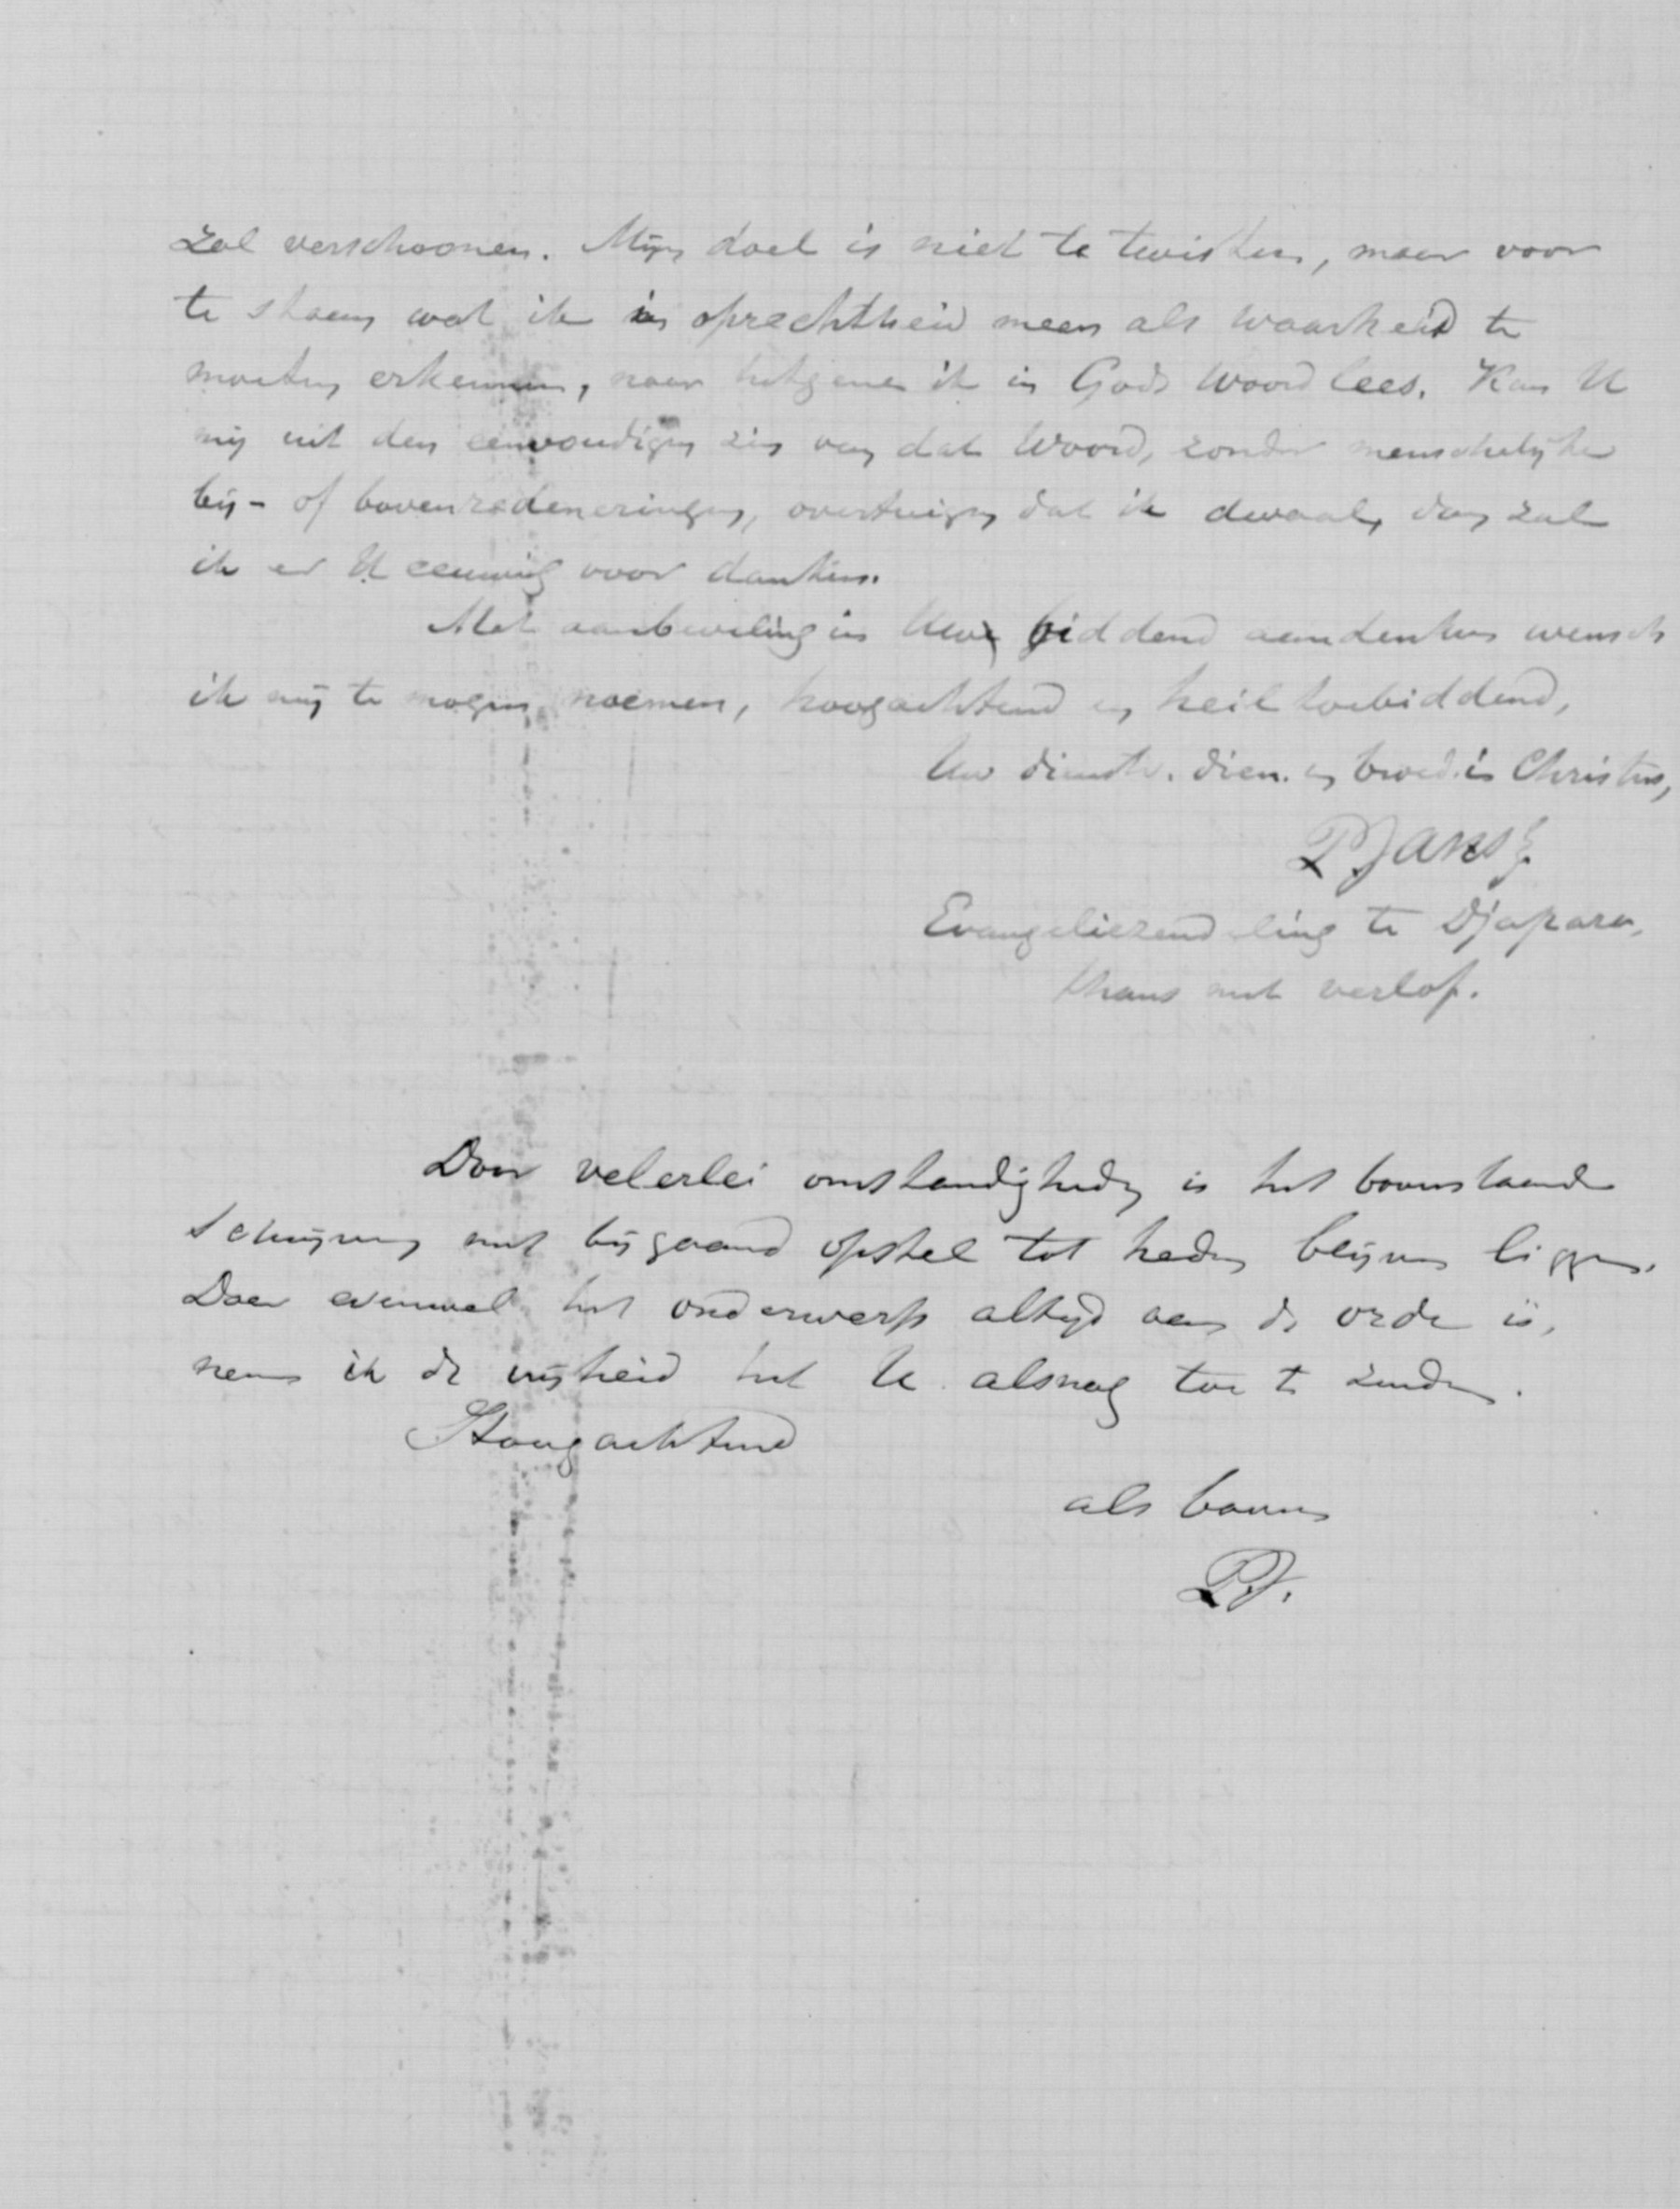 zal verschoonen. Mijn doel is niet te twisten, maar voor
te staan wat ik in oprechtheid meen als waarheid te
moeten erkennen, naar hetgeen ik in Gods Woord lees. Kan U
mij uit den eenvoudigen zin van dat Woord, zonder menschelijke
bij- of bovenredeneringen, overtuigen dat ik dwaal, dan zal
ik er U eeuwig voor danken.
Met aanbeveling in Uw biddend aandenken wensch
ik mij te mogen noemen, hoogachtend en heil toebiddend,
Uw dienstv. dien. en broed. in Christus,
PJansz
Evangeliezendeling te Djapara,
thans met verlof.
Door velerlei omstandigheden is het bovenstaande
schrijven met bijgaand opstel tot heden blijven liggen.
Daar evenwel het onderwerp altijd aan de orde is,
neem ik de vrijheid het U alsnog toe te zenden.
Hoogachtend
als boven
PJ.